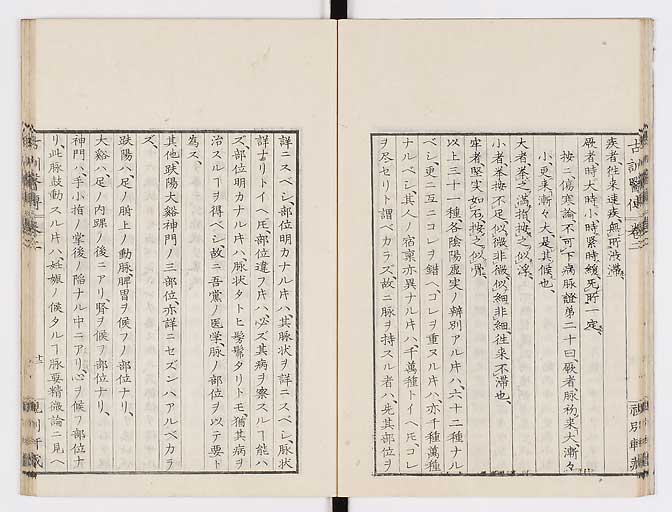 疾者、往来速疾、無所渋滞、
厥者時大時小、時緊時緩、死所一定、
按ニ傷寒論不可下病脉證第二十曰、厥者脉初来大、漸々
小、更来漸々大、是其候也、
大者、挙之満指、按之似浮、
小者挙按不足似微非微、似細非細、往来不滞也、
牢者堅実如石、按之似骨、
以上三十一種、各陰陽虚実ノ辨別アル片ハ、六十二種ナル
ベシ、更ニ互ニコレヲ錯ヘ、コレヲ重ヌル片ハ、亦千種萬種
ナルベシ、其人ノ宿禀亦異ナル片ハ、千萬種トイヘ𪜈、コレ
ヲ尽セリト謂ベカラズ、故ニ脉ヲ持スル者ハ、先其部位ヲ
詳ニスベシ、部位明カナル片ハ、其脉状ヲ詳ニスベシ、脉状
詳ナリトイヘ𪜈、部位違フ片ハ、必ズ其病ヲ察スルヿ能ハ
ズ、部位明カナル片ハ、脉状タトヒ髣髴タリトモ、猶其病ヲ
治スルヿヲ得ベシ、故ニ吾黨ノ医学、脉ノ部位ヲ以テ要ト
為ス、
其他、趺陽大谿神門ノ三部位、亦詳ニセズンハアルベカラ
ズ、
趺陽ハ、足ノ跗上ノ動脉、脾胃ヲ候フノ部位ナリ、
大谿ハ、足ノ内踝ノ後ニアリ、腎ヲ候フ部位ナリ、
神門ハ、手小指ノ掌後ノ陥ナル中ニアリ、心ヲ候フ部位ナ
リ、此脉鼓動スル片ハ、妊娠ノ候タルヿ、脉要精微論ニ見ヘ